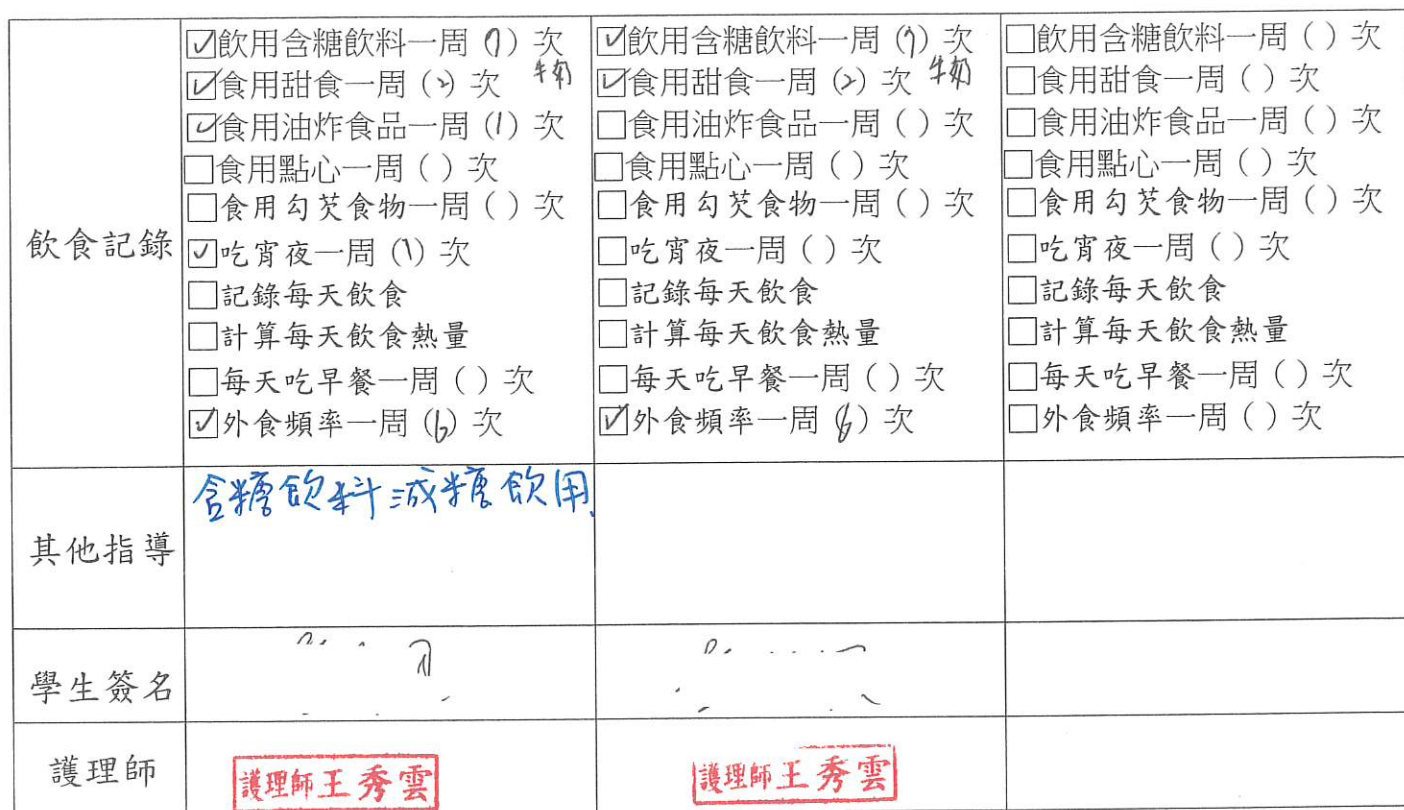 飲食記錄
☑飲用含糖飲料一周(7)次
牛奶
☑食用甜食一周(2)次
☑食用油炸食品一周(1)次
☐食用點心一周()次
☐食用勾芡食物一周()次
☑吃宵夜一周(1)次
☐記錄每天飲食
☐計算每天飲食熱量
☐每天吃早餐一周()次
☑外食頻率一周(6)次
☑飲用含糖飲料一周(7)次
牛奶
☑食用甜食一周(2)次
☐食用油炸食品一周()次
☐食用點心一周()次
☐食用勾芡食物一周()次
☐吃宵夜一周()次
☐記錄每天飲食
☐計算每天飲食熱量
☐每天吃早餐一周()次
☑外食頻率一周(6)次
☐飲用含糖飲料一周()次
☐食用甜食一周()次
☐食用油炸食品一周()次
☐食用點心一周()次
☐食用勾芡食物一周()次
☐吃宵夜一周()次
☐記錄每天飲食
☐計算每天飲食熱量
☐每天吃早餐一周()次
☐外食頻率一周()次
其他指導
含糖飲料減糖飲用
學生簽名
護理師
護理師王秀雲
護理師王秀雲